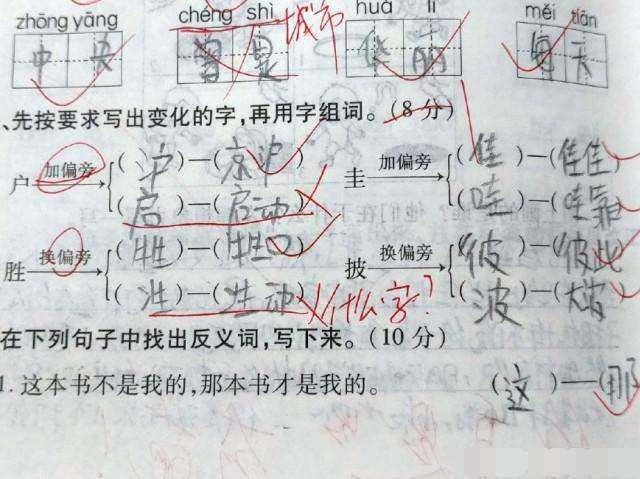 zhōng yāng chéng shì huá lì měi tiān
中央 华丽 每天 城市
、先按要求写出变化的字,再用字组词。(8分)
户 加偏旁 (沪)—(京沪) 圭 加偏旁 (佳)—(佳佳)
(启)—(启动) (哇)—(哇靠)
胜 换偏旁 (牲)—(牲口) 披 换偏旁 (彼)—(彼此)
—(生动) 什么字? (波)—(大波)
在下列句子中找出反义词,写下来。(10分)
1.这本书不是我的,那本书才是我的。 (这)—(那